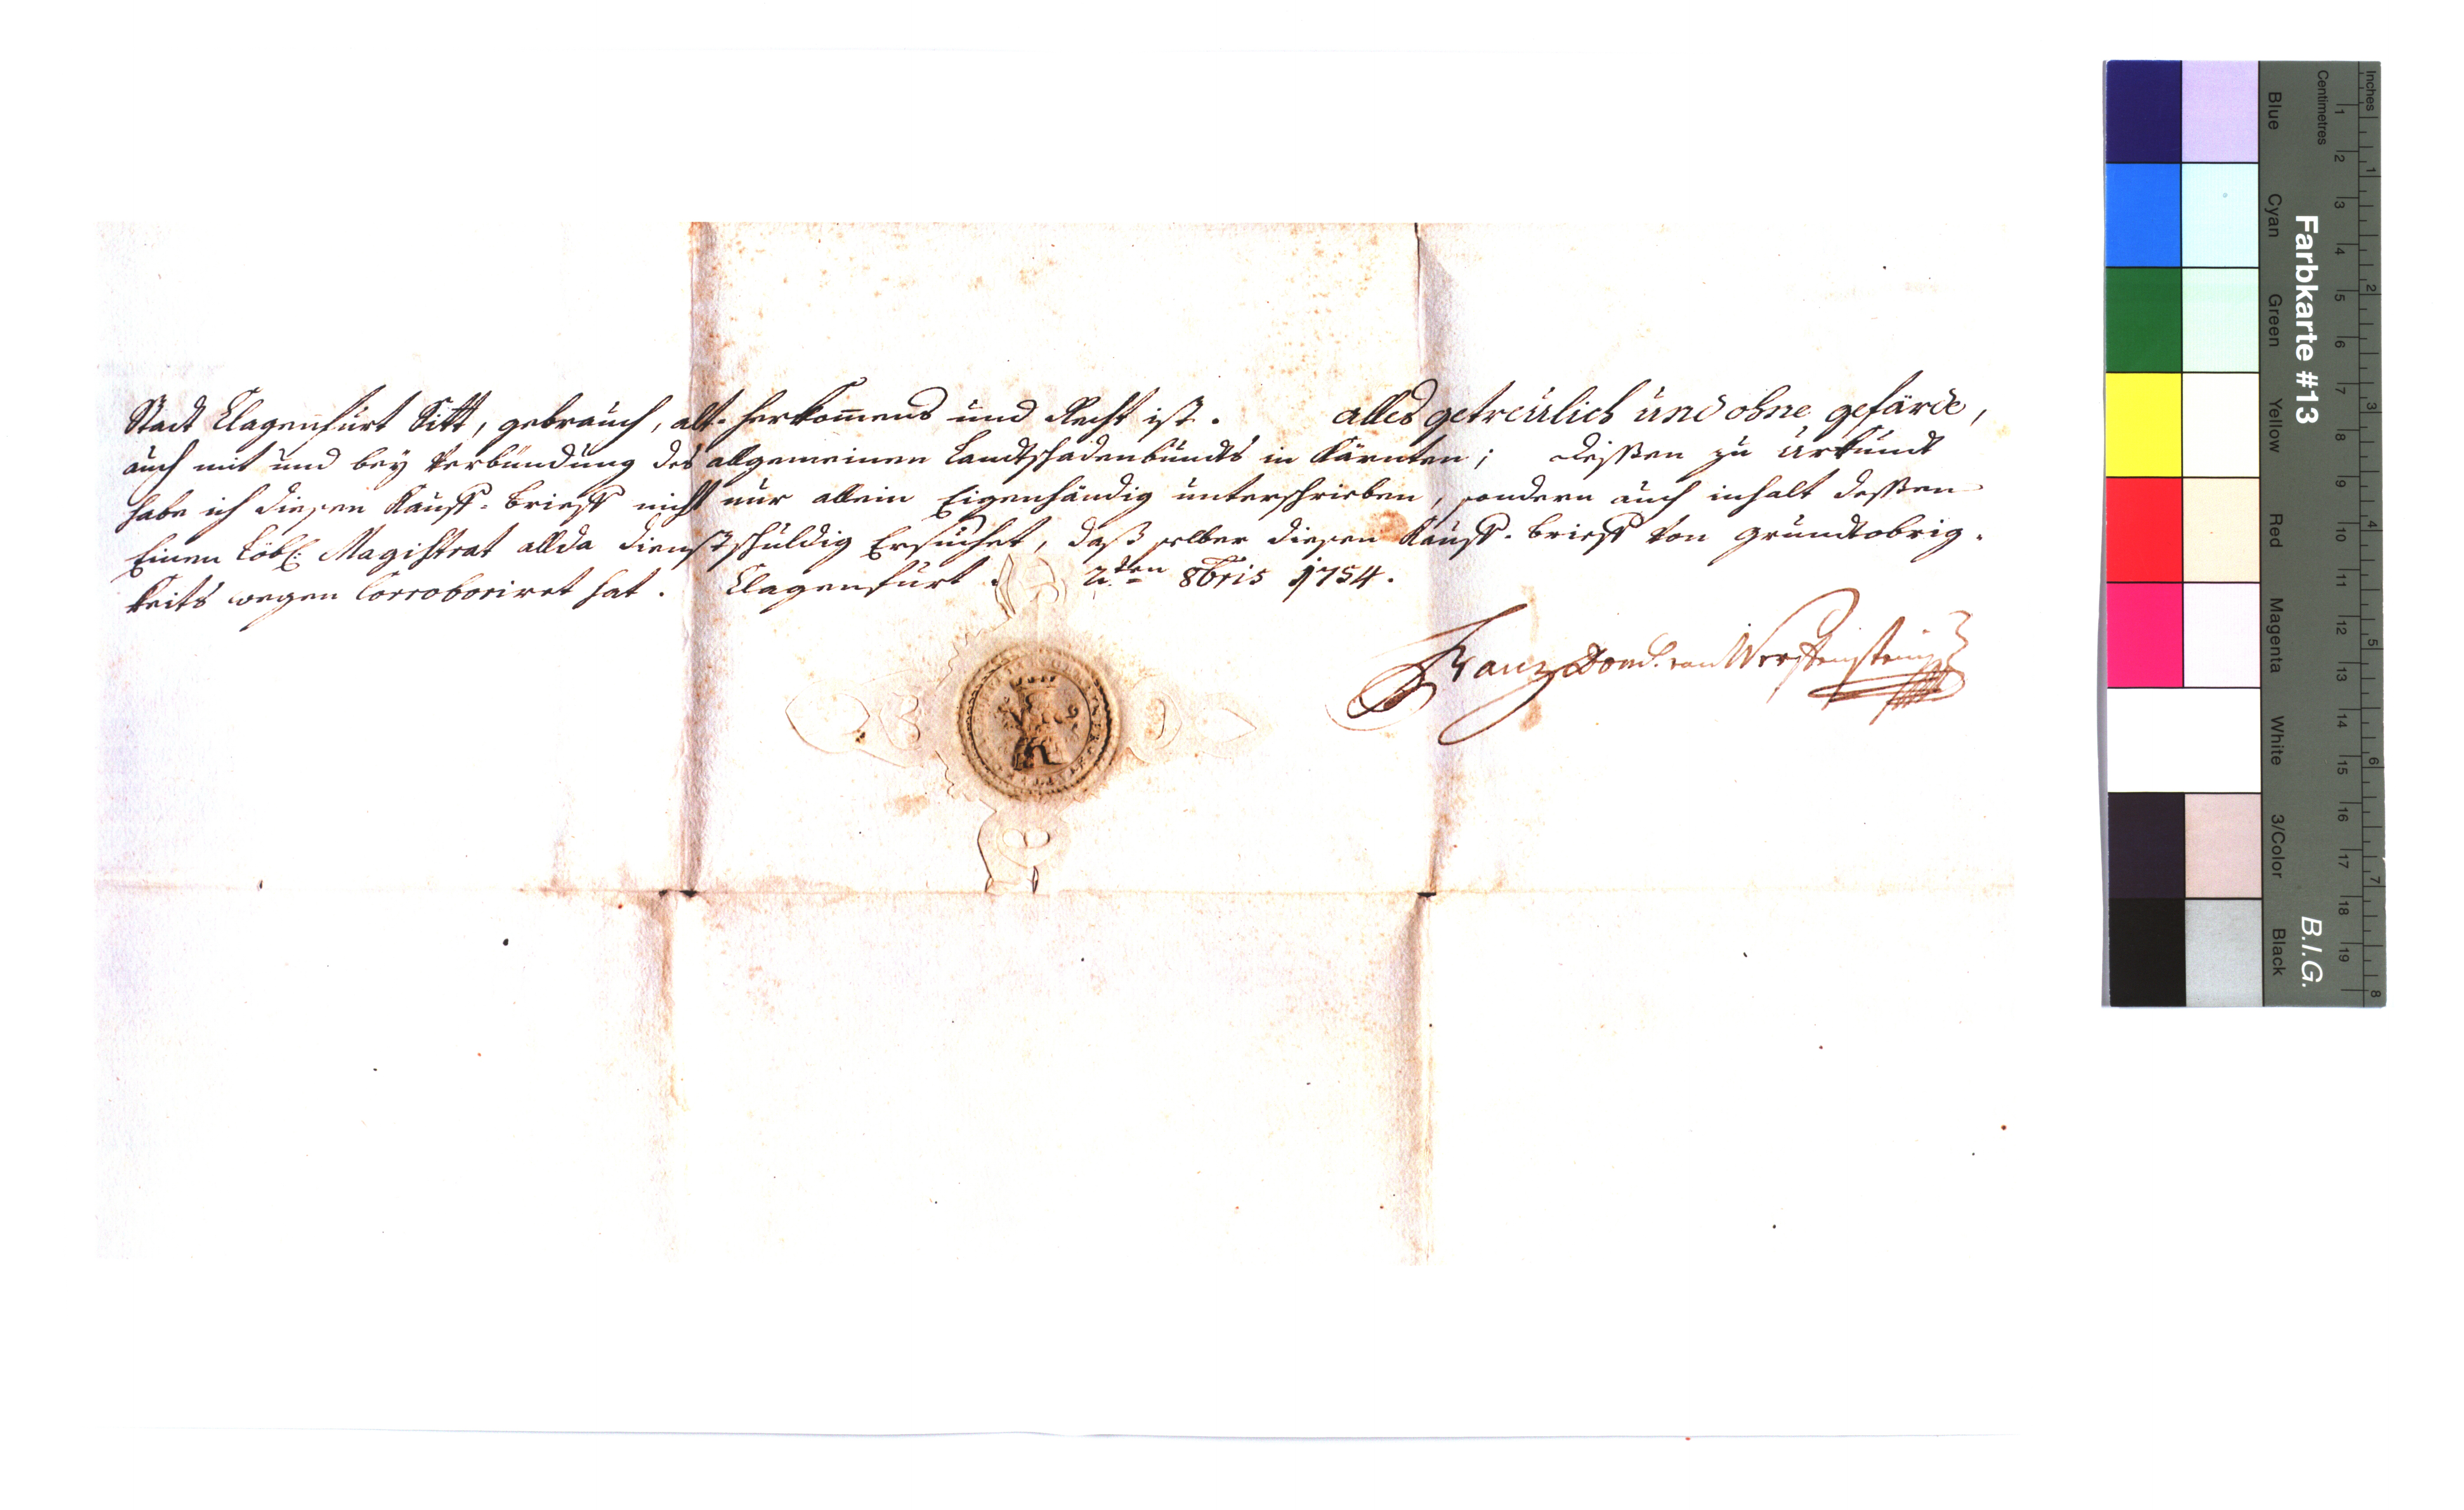 Stadt Clagenfurt Sitt, gebrauch, alt-herkom̄ens und Recht ist. alles getreülich und ohne gefärde,
auch mit und bey Verbündung des allgemeinen Landtschadenbunds in Kärnten; dessen zu Urkundt
habe ich diesen Kauff-brieff nicht nur allein Eigenhändig unterschrieben, sondern auch inhalt dessen
Einen Löbl: Magistrat allda dienstschuldig Ersuchet, daß selber diesen Kauff-brieff von grundtobrig-
keits wegen Corroboriret hat. Clagenfurt. 2ten 8bris 1754.
Franz von
Farbkarte #13
B.I.G.
Inches
1 2 3 4 5 6 7 8
Centimetres
1 2 3 4 5 6 7 8 9 10 11 12 13 14 15 16 17 18 19
Blue
Cyan
Green
Yellow
Red
Magenta
White
3/Color
Black